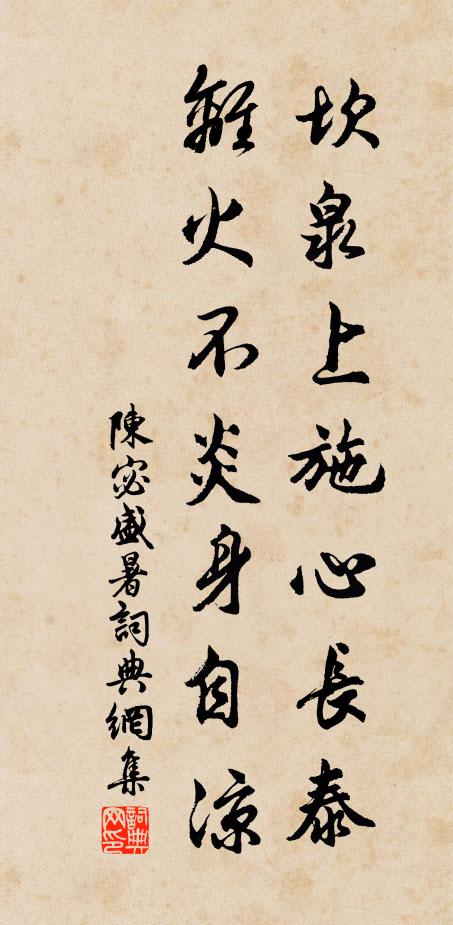 坎泉上施心長泰
離火不炎身自凉
陳宓盛暑詞典網集
詞典网印